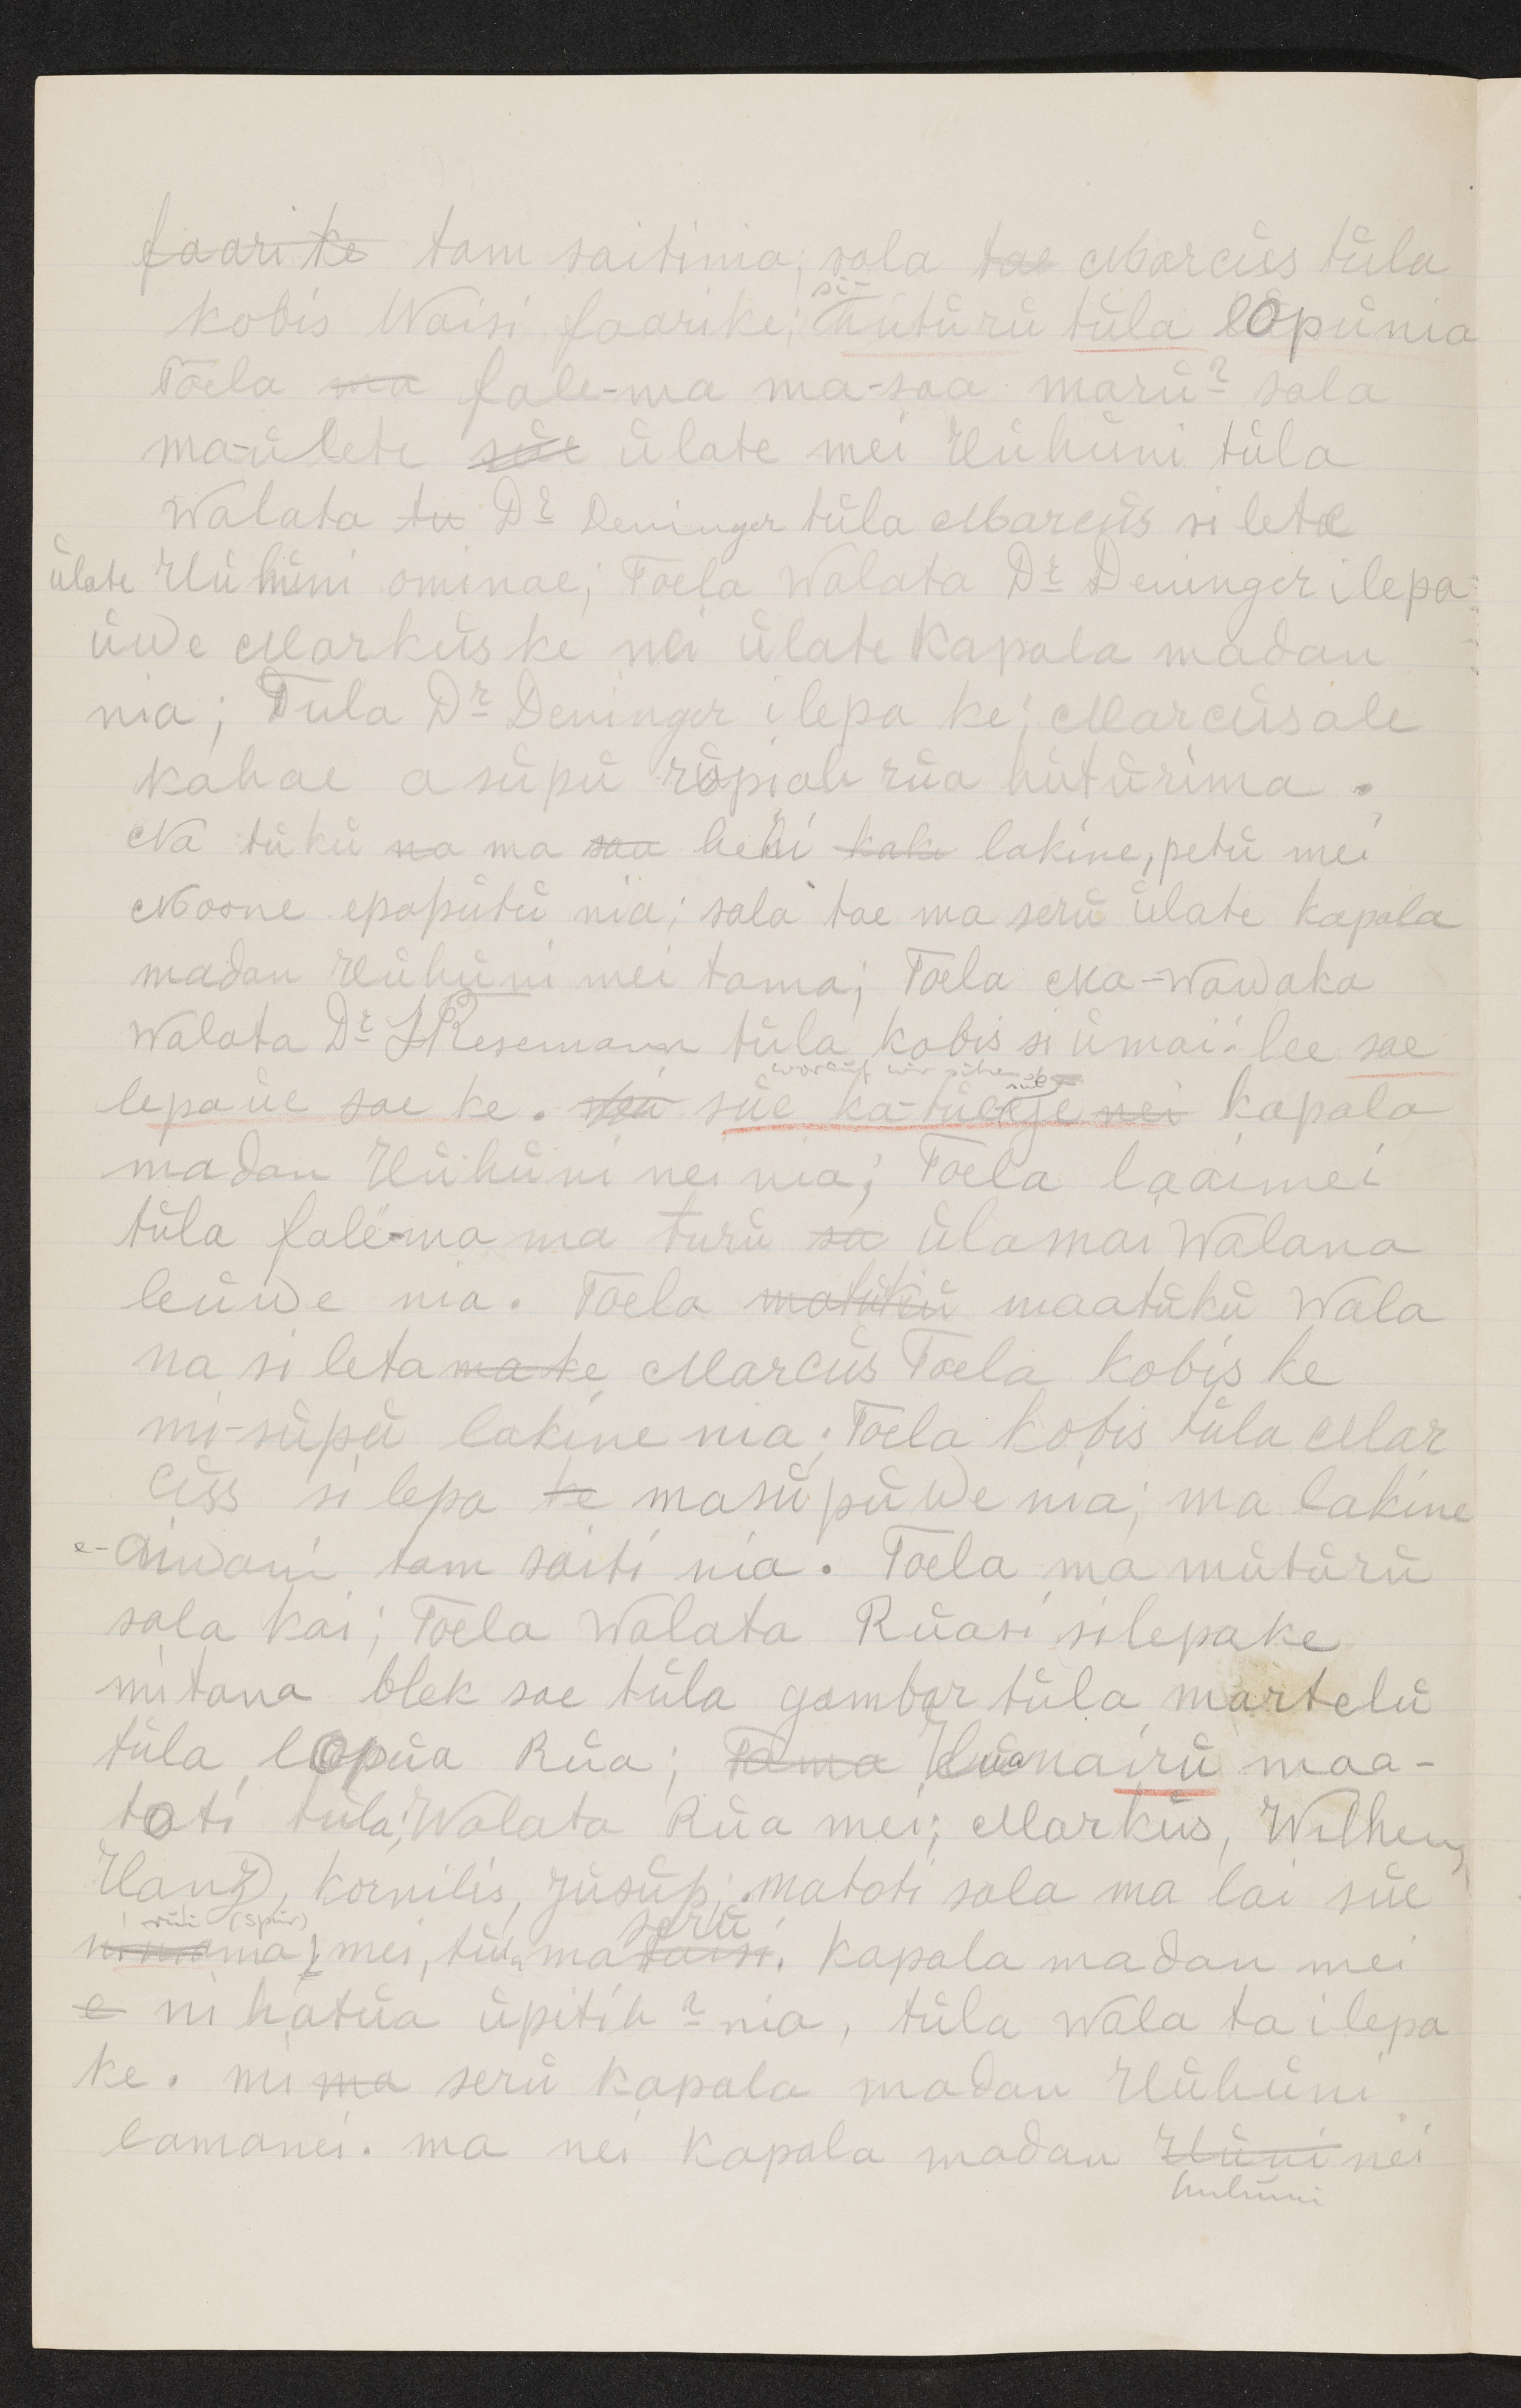 faari ke tam saitinia; sala tae Marcüs tüla
kobis Waisi faarike; hütürü tüla lopünia
sü-
Toela ma fale-ma ma-saa marü? sala
ma-ülete süe ülate mei Hühüni tüla
Walata tu Dr Deninger tüla Marcüs si letae
ülate Hühüni ominae; Toela Walata Dr Deninger ilepa
üwe Marküs ke nei ülate Kapala madan
nia; Tula Dr Deninger ilepa ke; Marcüs ale
kahae a süpü rüpiah rüa hütürima.
Na tükü na ma saa heni kake lakine, petü mei
Noone epapütü nia; sala tae ma serü ülate kapala
madan Hühüni mei tama; Toela Ma-wawaka
Walata Dr Resemann tüla kobis si ümai-lee sae
worauf wir sehen
lepaüe sae ke. süe ka-tüe nei kapala
madan Hühüni nei nia; Toela laaimei
tüla falë-ma ma turü sa ülamai Walana
leüwe nia. Toela matükü maatükü Wala
na si leta ma ke Marcüs Toela kobis ke
mi-süpü lakine nia; Toela kobis tüla Mar
cüss si lepa ke masüpüwe nia; ma lakine
e-aiwani tam saiti nia. Toela ma mütürü
sala kai; Toela Walata Rüasi silepake
mitana blek sae tüla gambar tüla martelü
tüla lopüa Rüa; Tama Hüanairü maa-
toti tüla; Walata Rüa mei; Marküs, Wilhem,
Hanz, kornilis, Jüsüp; matoti sala ma lai süe
rüli (spür) serü
ma, mei, tüla ma taisi. Kapala madan mei
e ni hatüa üpitih? nia, tüla wala ta ilepa
ke. mi ma serü kapala madan Hühüni
lamanei. ma nei kapala madan Hüni nei
huhüni